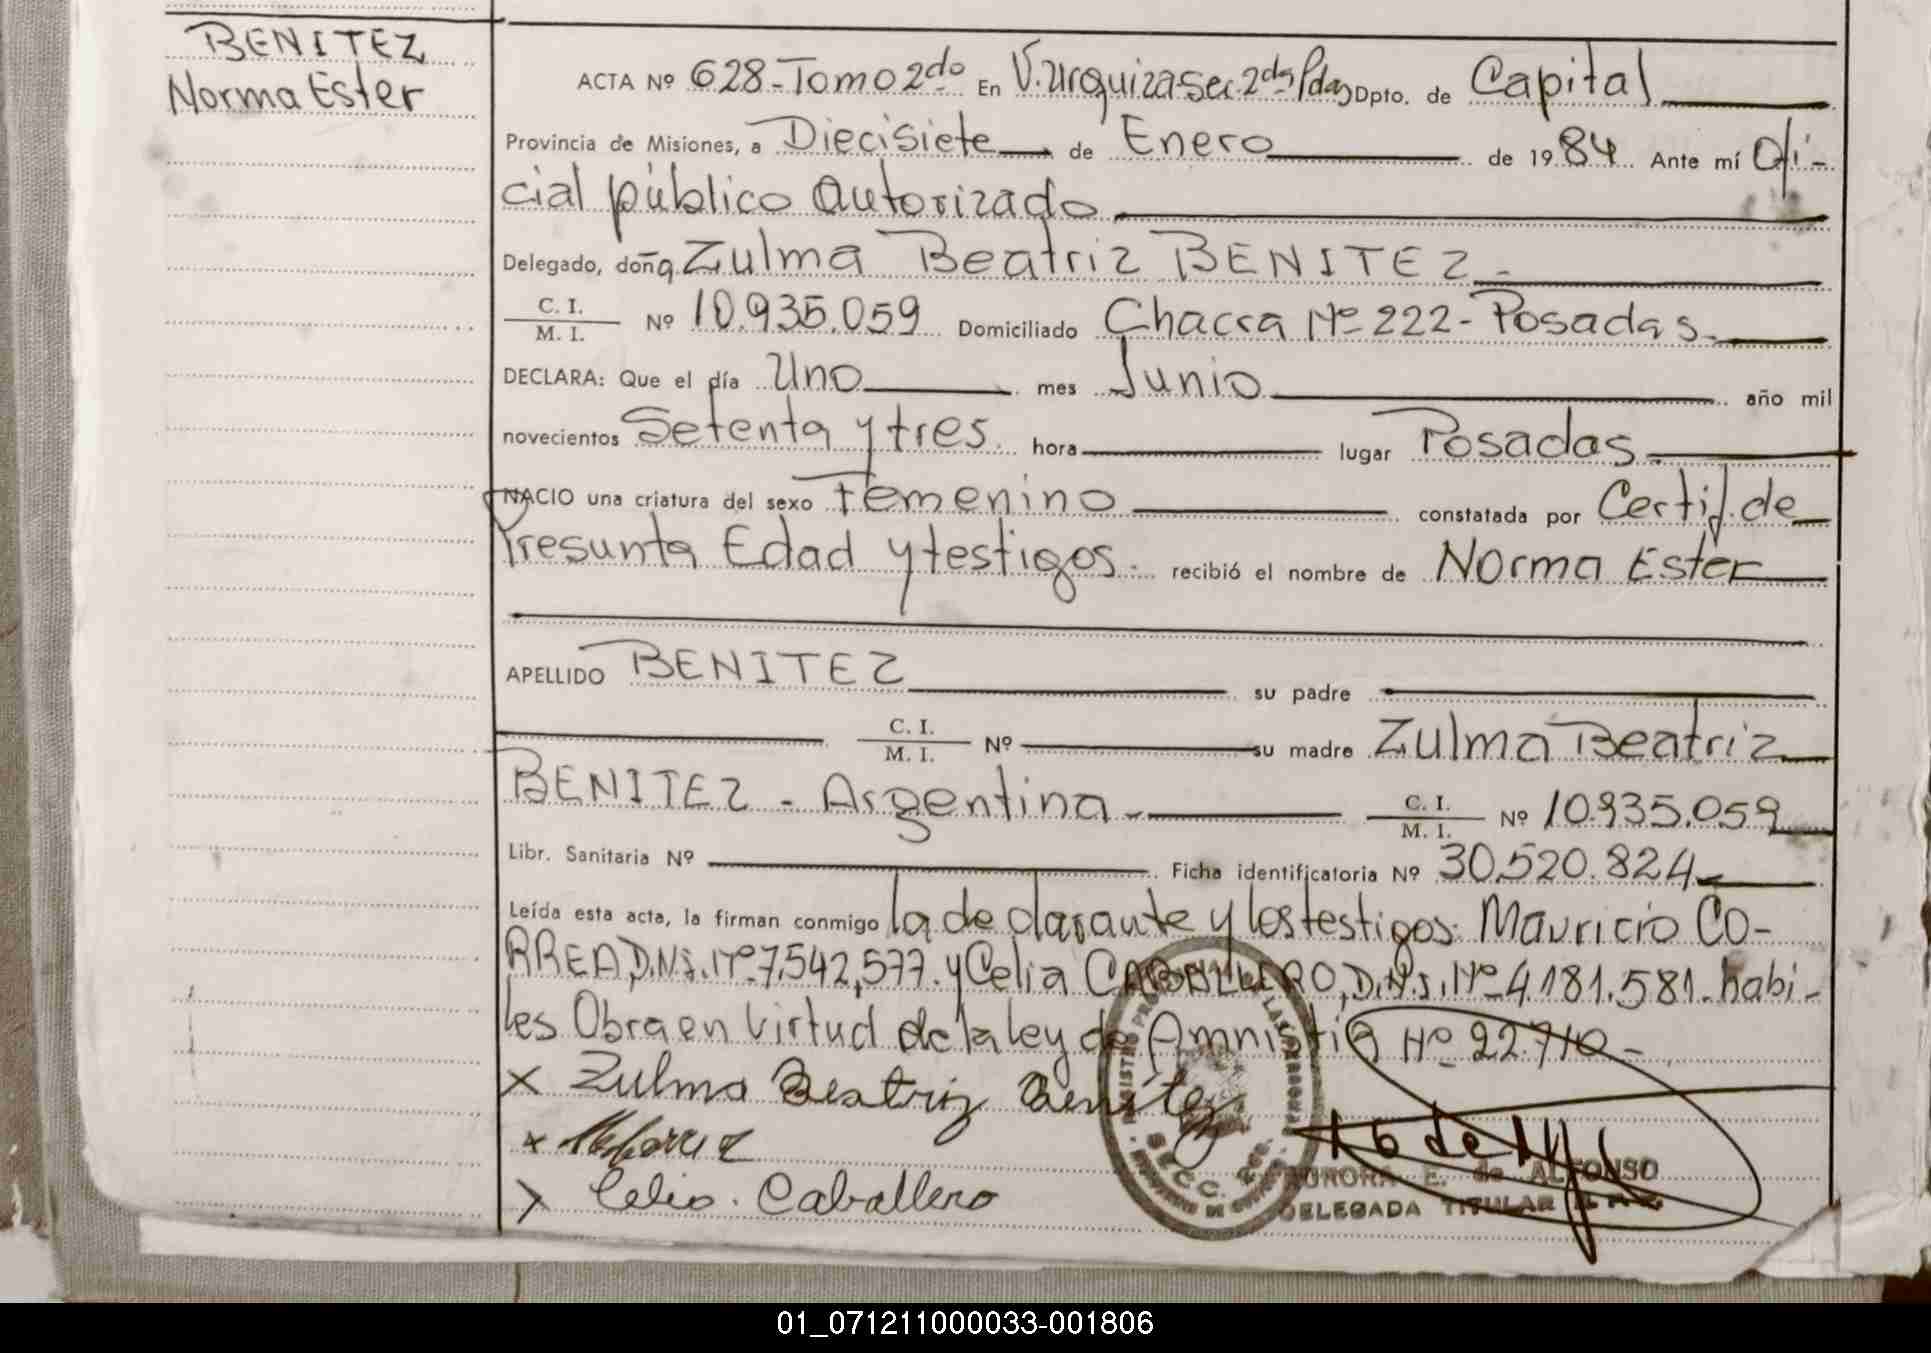 BENITEZ
Norma Ester
ACTA Nº 628-Tomo 2do En V. Urquiza Sec. 2da Pdas Dpto. de Capital
Provincia de Misiones, a Diecisiete de Enero de 1984 Ante mí Ofi-
cial público autorizado
Delegado, doña Zulma Beatriz BENITEZ -
C. I.
M. I. Nº 10.935.059 Domiciliado Chacra Nº 222 - Posadas.
DECLARA: Que el día Uno mes Junio año mil
novecientos Setenta y tres. hora lugar Posadas.
NACIO una criatura del sexo Femenino constatada por Certif. de
Presunta Edad y testigos. recibió el nombre de Norma Ester
APELLIDO BENITEZ su padre
C. I.
M. I. Nº su madre Zulma Beatriz
BENITEZ - Argentina - C. I.
M. I. Nº 10.935.059
Libr. Sanitaria Nº Ficha identificatoria Nº 30.520.824
Leída esta acta, la firman conmigo la declarante y los testigos: Mauricio CO-
RREA, D.N.I. Nº 7.542,577. y Celia CABALLERO, D.N.I. Nº 4.181.581. habi-
les Obra en virtud de la ley de Amnistia Nº 22.710 -
x Zulma Beatriz Benitez
x
x Celia. Caballero
SECC. 2da.
AURORA E. de ALFONSO
DELEGADA TITULAR
01_071211000033-001806